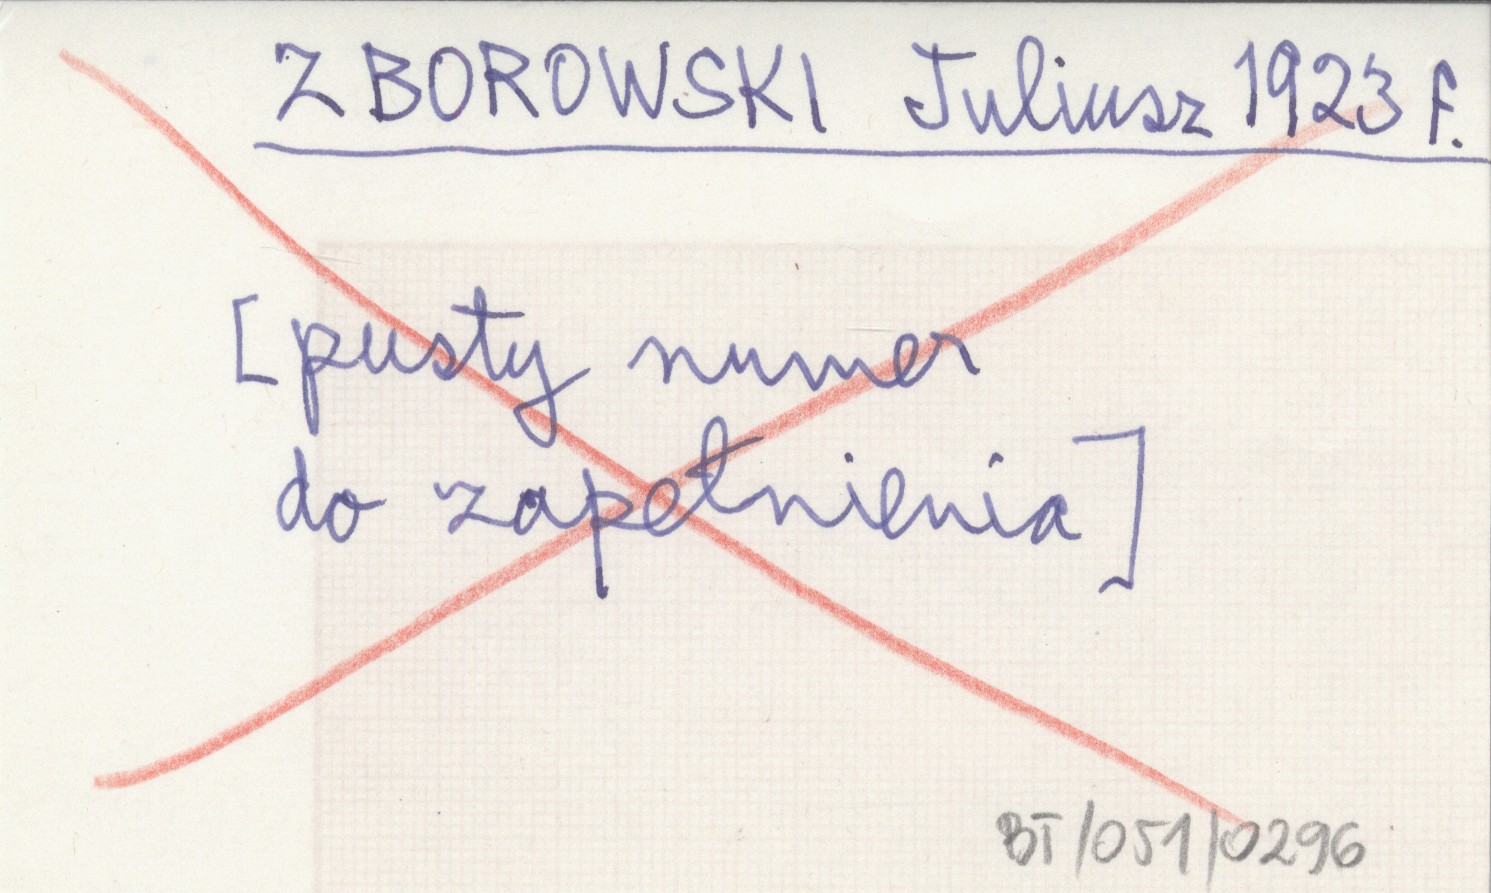 ZBOROWSKI Juliusz 1923 f.
[pusty numer
do zapełnienia]
BT/051/0296